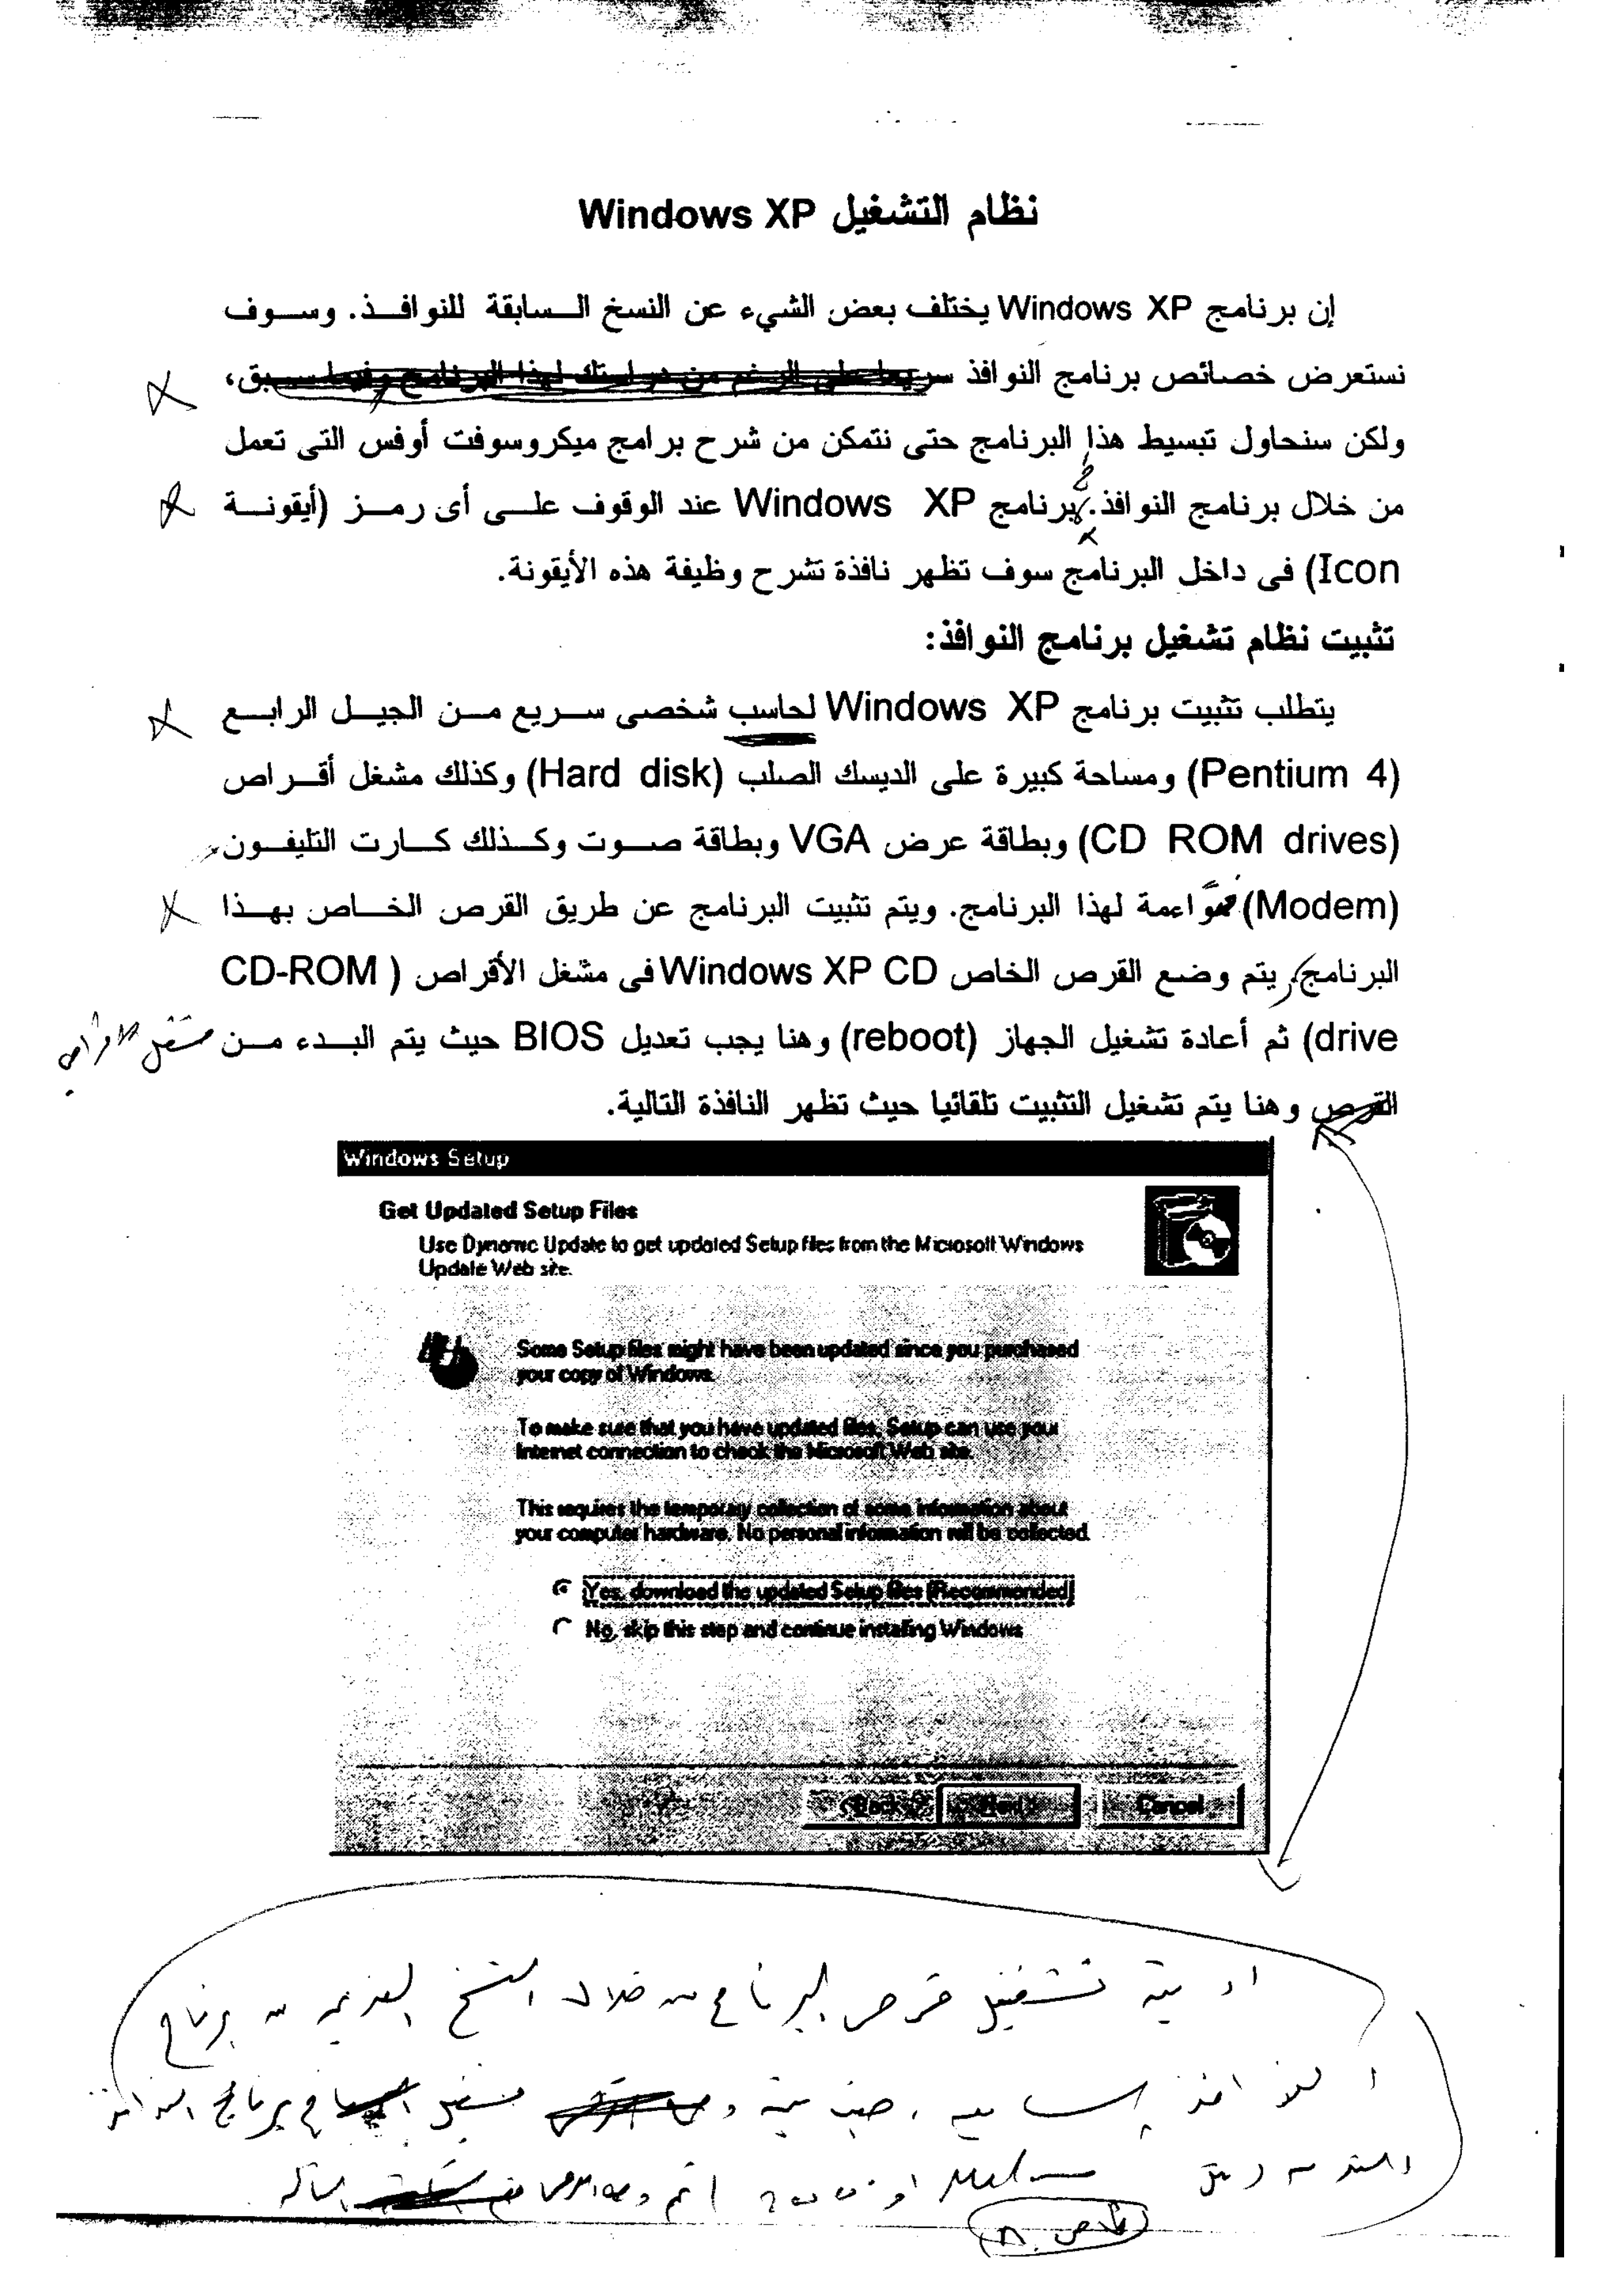 نظام التشغيل Windows XP
إن برنامج Windows XP يختلف بعض الشيء عن النسخ السابقة للنوافذ. وسوف
نستعرض خصائص برنامج النوافذ سريعا على الرغم من دراستك لهذا البرنامج وفيما سبق،
ولكن سنحاول تبسيط هذا البرنامج حتى نتمكن من شرح برامج ميكروسوفت أوفس التى تعمل
من خلال برنامج النوافذ. برنامج Windows XP عند الوقوف على أى رمز (أيقونة
Icon) فى داخل البرنامج سوف تظهر نافذة تشرح وظيفة هذه الأيقونة.
تثبيت نظام تشغيل برنامج النوافذ:
يتطلب تثبيت برنامج Windows XP لحاسب شخصى سريع من الجيل الرابع
(Pentium 4) ومساحة كبيرة على الديسك الصلب (Hard disk) وكذلك مشغل أقراص
(CD ROM drives) وبطاقة عرض VGA وبطاقة صوت وكذلك كارت التليفون
(Modem) مواءمة لهذا البرنامج. ويتم تثبيت البرنامج عن طريق القرص الخاص بهذا
البرنامج، يتم وضع القرص الخاص Windows XP CD فى مشغل الأقراص ( CD-ROM
drive) ثم أعادة تشغيل الجهاز (reboot) وهنا يجب تعديل BIOS حيث يتم البدء من مشغل الأقراص
القرص وهنا يتم تشغيل التثبيت تلقائيا حيث تظهر النافذة التالية.
Windows Setup
Get Updated Setup Files
Use Dynamic Update to get updated Setup files from the Microsoft Windows
Update Web site.
Some Setup files might have been updated since you purchased
your copy of Windows.
To make sure that you have updated files, Setup can use your
Internet connection to check the Microsoft Web site.
This requires the temporary collection of some information about
your computer hardware. No personal information will be collected.
Yes, download the updated Setup files (Recommended)
No, skip this step and continue installing Windows
< Back Next > Cancel
او يتم تشغيل قرص البرنامج من خلال النسخ القديمة من برنامج
النوافذ السابقة حيث يتم مشغل برنامج النوافذ